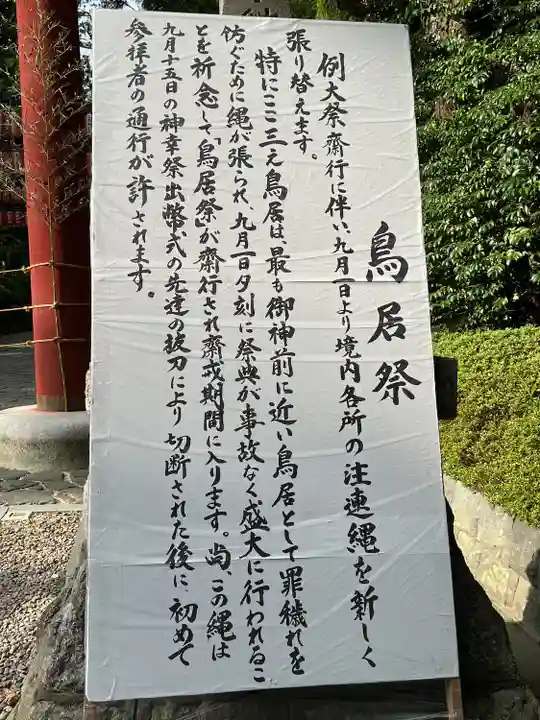 鳥居祭
例大祭齋行に伴い、九月一日より境内各所の注連縄を新しく
張り替えます。
特にここ三之鳥居は、最も御神前に近い鳥居として罪穢れを
防ぐために縄が張られ、九月一日夕刻に祭典が事故なく盛大に行われるこ
とを祈念して「鳥居祭」が齋行され齋戒期間に入ります。尚、この縄は
九月十五日の神幸祭出幣式の先達の抜刀により切断された後に、初めて
参拝者の通行が許されます。